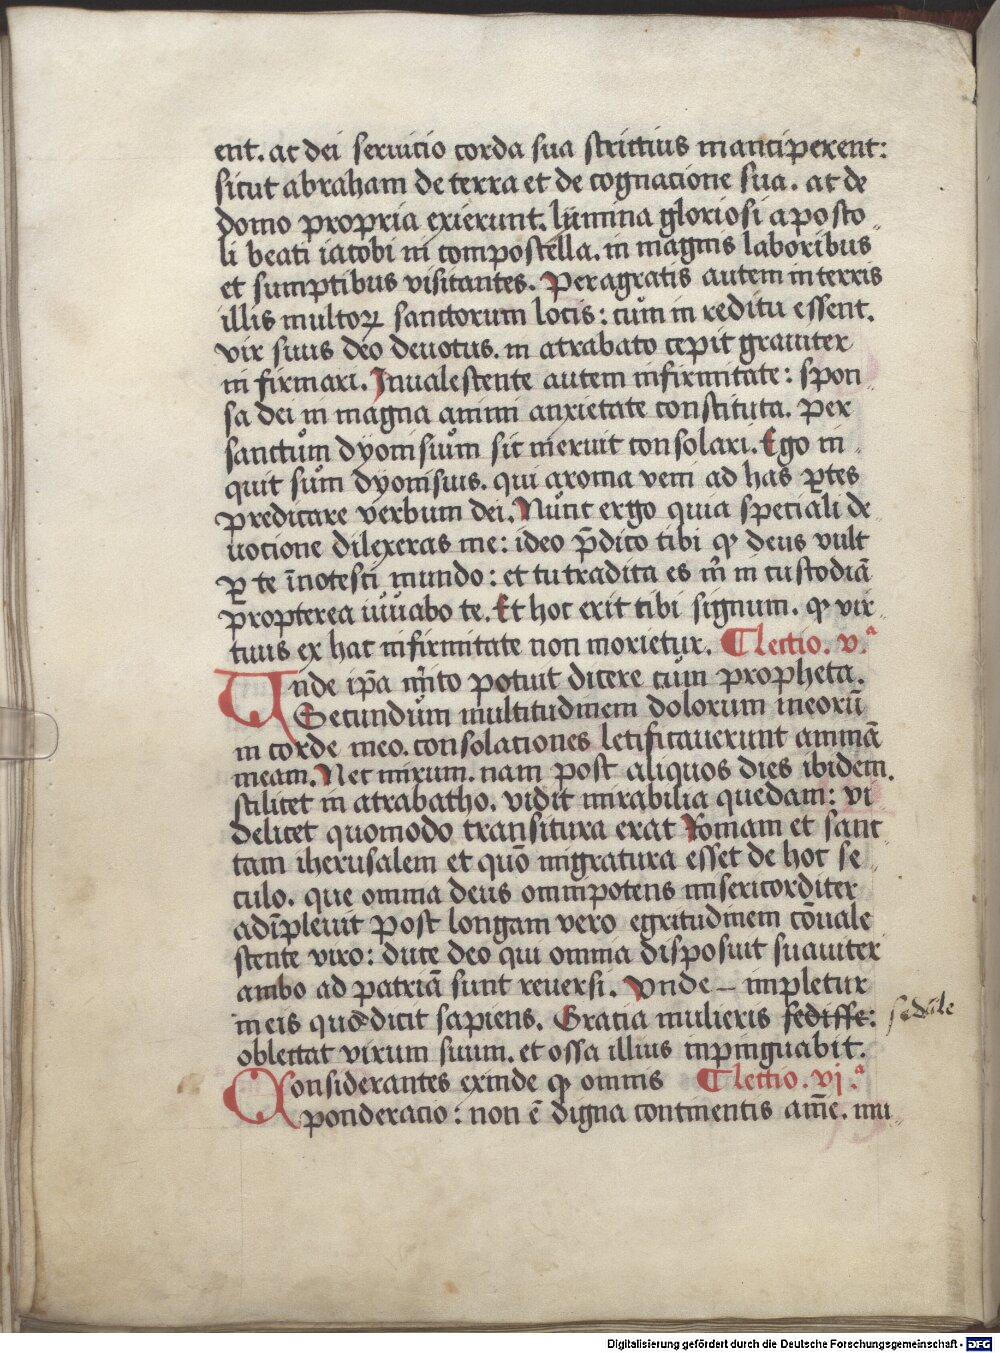 ent. ac dei seruicio corda sua strictius manciperent:
sicut abraham de terra et de cognacione sua. ac de
domo propria exierunt. limina gloriosi aposto
li beati iacobi in compostella. in magnis laboribus
et sumptibus visitantes. Peragratis autem in terris
illis multoꝝ sanctorum locis: cum in reditu essent.
vir suus deo deuotus. in atrabato cepit grauiter
in firmari. Inualescente autem infirmitate: spon
sa dei in magna animi anxietate constituta. per
sanctum dyonisium sic meruit consolari. Ego in
quit sum dyonisius. qui aroma veni ad has ꝑtes
predicare verbum dei. Nunc ergo quia speciali de
uocione dilexeras me: ideo p̄dico tibi ꝙ deus vult
ꝑ te īnotesci mundo: et tu tradita es m̄ in custodiā
propterea iuuabo te. Et hoc erit tibi signum. ꝙ vir
tuus ex hac infirmitate non morietur. Lectio. v.ª
Unde ip̄a m̄ito potuit dicere cum propheta.
Secundum multitudinem dolorum meorū
in corde meo. consolationes letificauerunt animā
meam. Nec mirum. nam post aliquos dies ibidem.
scilicet in atrabatho. vidit mirabilia quedam: vi
delicet quomodo transitura erat Romam et sanc
tam iherusalem et quō migratura esset de hoc se
culo. que omnia deus omnipotens misericorditer
adīpleuit post longam vero egritudinem cōuale
scente viro: duce deo qui omnia disposuit suauiter
ambo ad patriā sunt reuersi. Vnde – impletur
in eis quod dicit sapiens. Gracia mulieris sedisse: sedule
oblectat virum suum. et ossa illius inpinguabit.
Considerantes exinde ꝙ omnis Lectio. vj.ª
ponderacio: non ē digna continentis anīe. mu